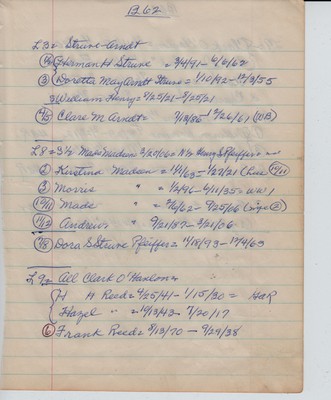 B 62
L 3 = Struve-Arndt
Herman H Struve = 3/4/91 - 6/6/62
③ Doretta May Arndt Struve = 1/10/92 - 12/3/55
William Henry = 9/25/21 - 9/25/21
Clare M Arndt = 7/18/86 - 12/26/61 (WB)
L 8 = 3 1/2 Made Madsen 3/20/06 = N 1/2 Henry S Pfeiffer
② Kristina Madsen = 1/27/21
③ Morris " = 1/2/96 - 6/11/35 = WW 1
Made " = 9/25/06
Andrew " = 9/21/87 - 3/21/06
Dora S Struve Pfeiffer = 11/18/93 - 12/4/69
L 9 = All Clark O'Hanlon
H H Reed = 4/25/41 - 1/15/20 = GAR
Hazel " = 10/13/43 - 7/20/17
⑥ Frank Reed = 8/13/70 - 9/29/38